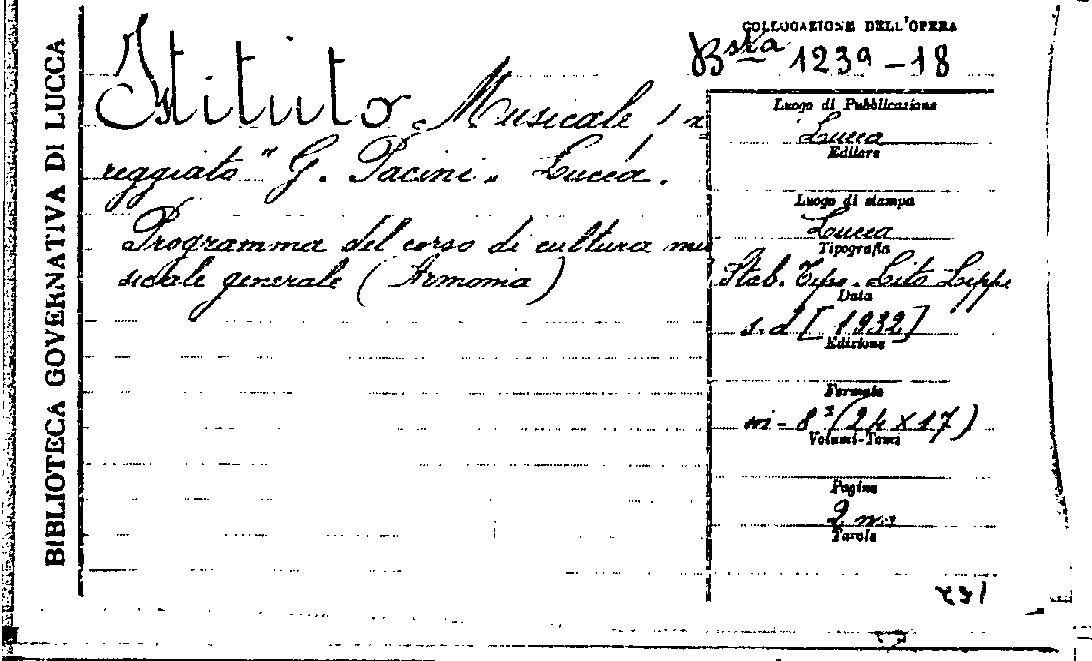 BIBLIOTECA GOVERNATIVA DI LUCCA
COLLOCAZIONE DELL'OPERA
Bsta 1239-18
Istituto Musicale
reggiato "G. Pacini. Lucca.
Programma del corso di cultura mu
sicale generale (Armonia)
Luogo di Pubblicazione
Lucca
Editore
Luogo di stampa
Lucca
Tipografia
Stab. Tipo-Lito Lippi
Data
s.d [1932]
Edizione
Formato
in-8° (24x17)
Volumi-Tomi
Pagine
2 nn
Tavole